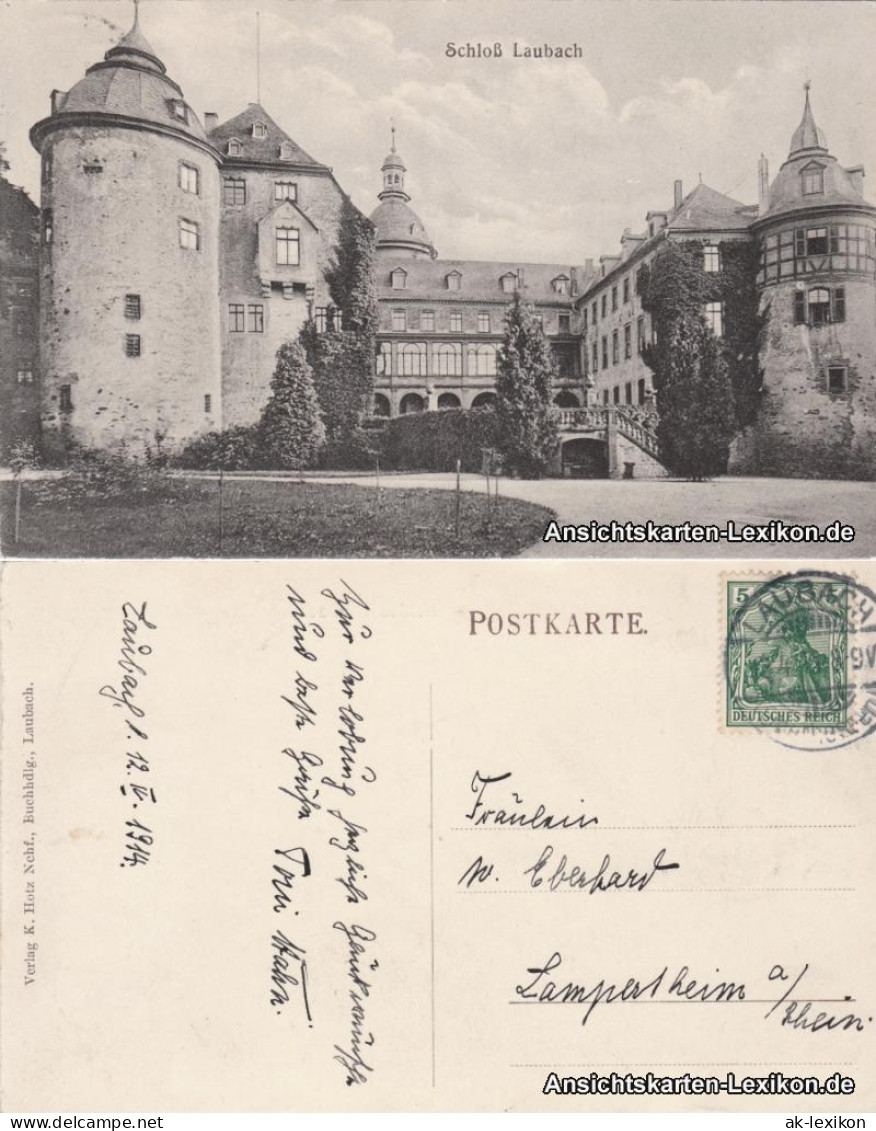 Schloß Laubach
Ansichtskarten-Lexikon.de
POSTKARTE.
LAUBACH
5
DEUTSCHES REICH
Verlag K. Hotz Nchf., Buchhdlg., Laubach.
Laubach, d. 12. IV. 1914.
Zur Verlobung herzliche Glückwünsche
und beste Grüße Toni Hahn.
Fräulein
W. Eberhard
Lampertheim a/
Rhein.
Ansichtskarten-Lexikon.de
delcampe.net
ak-lexikon